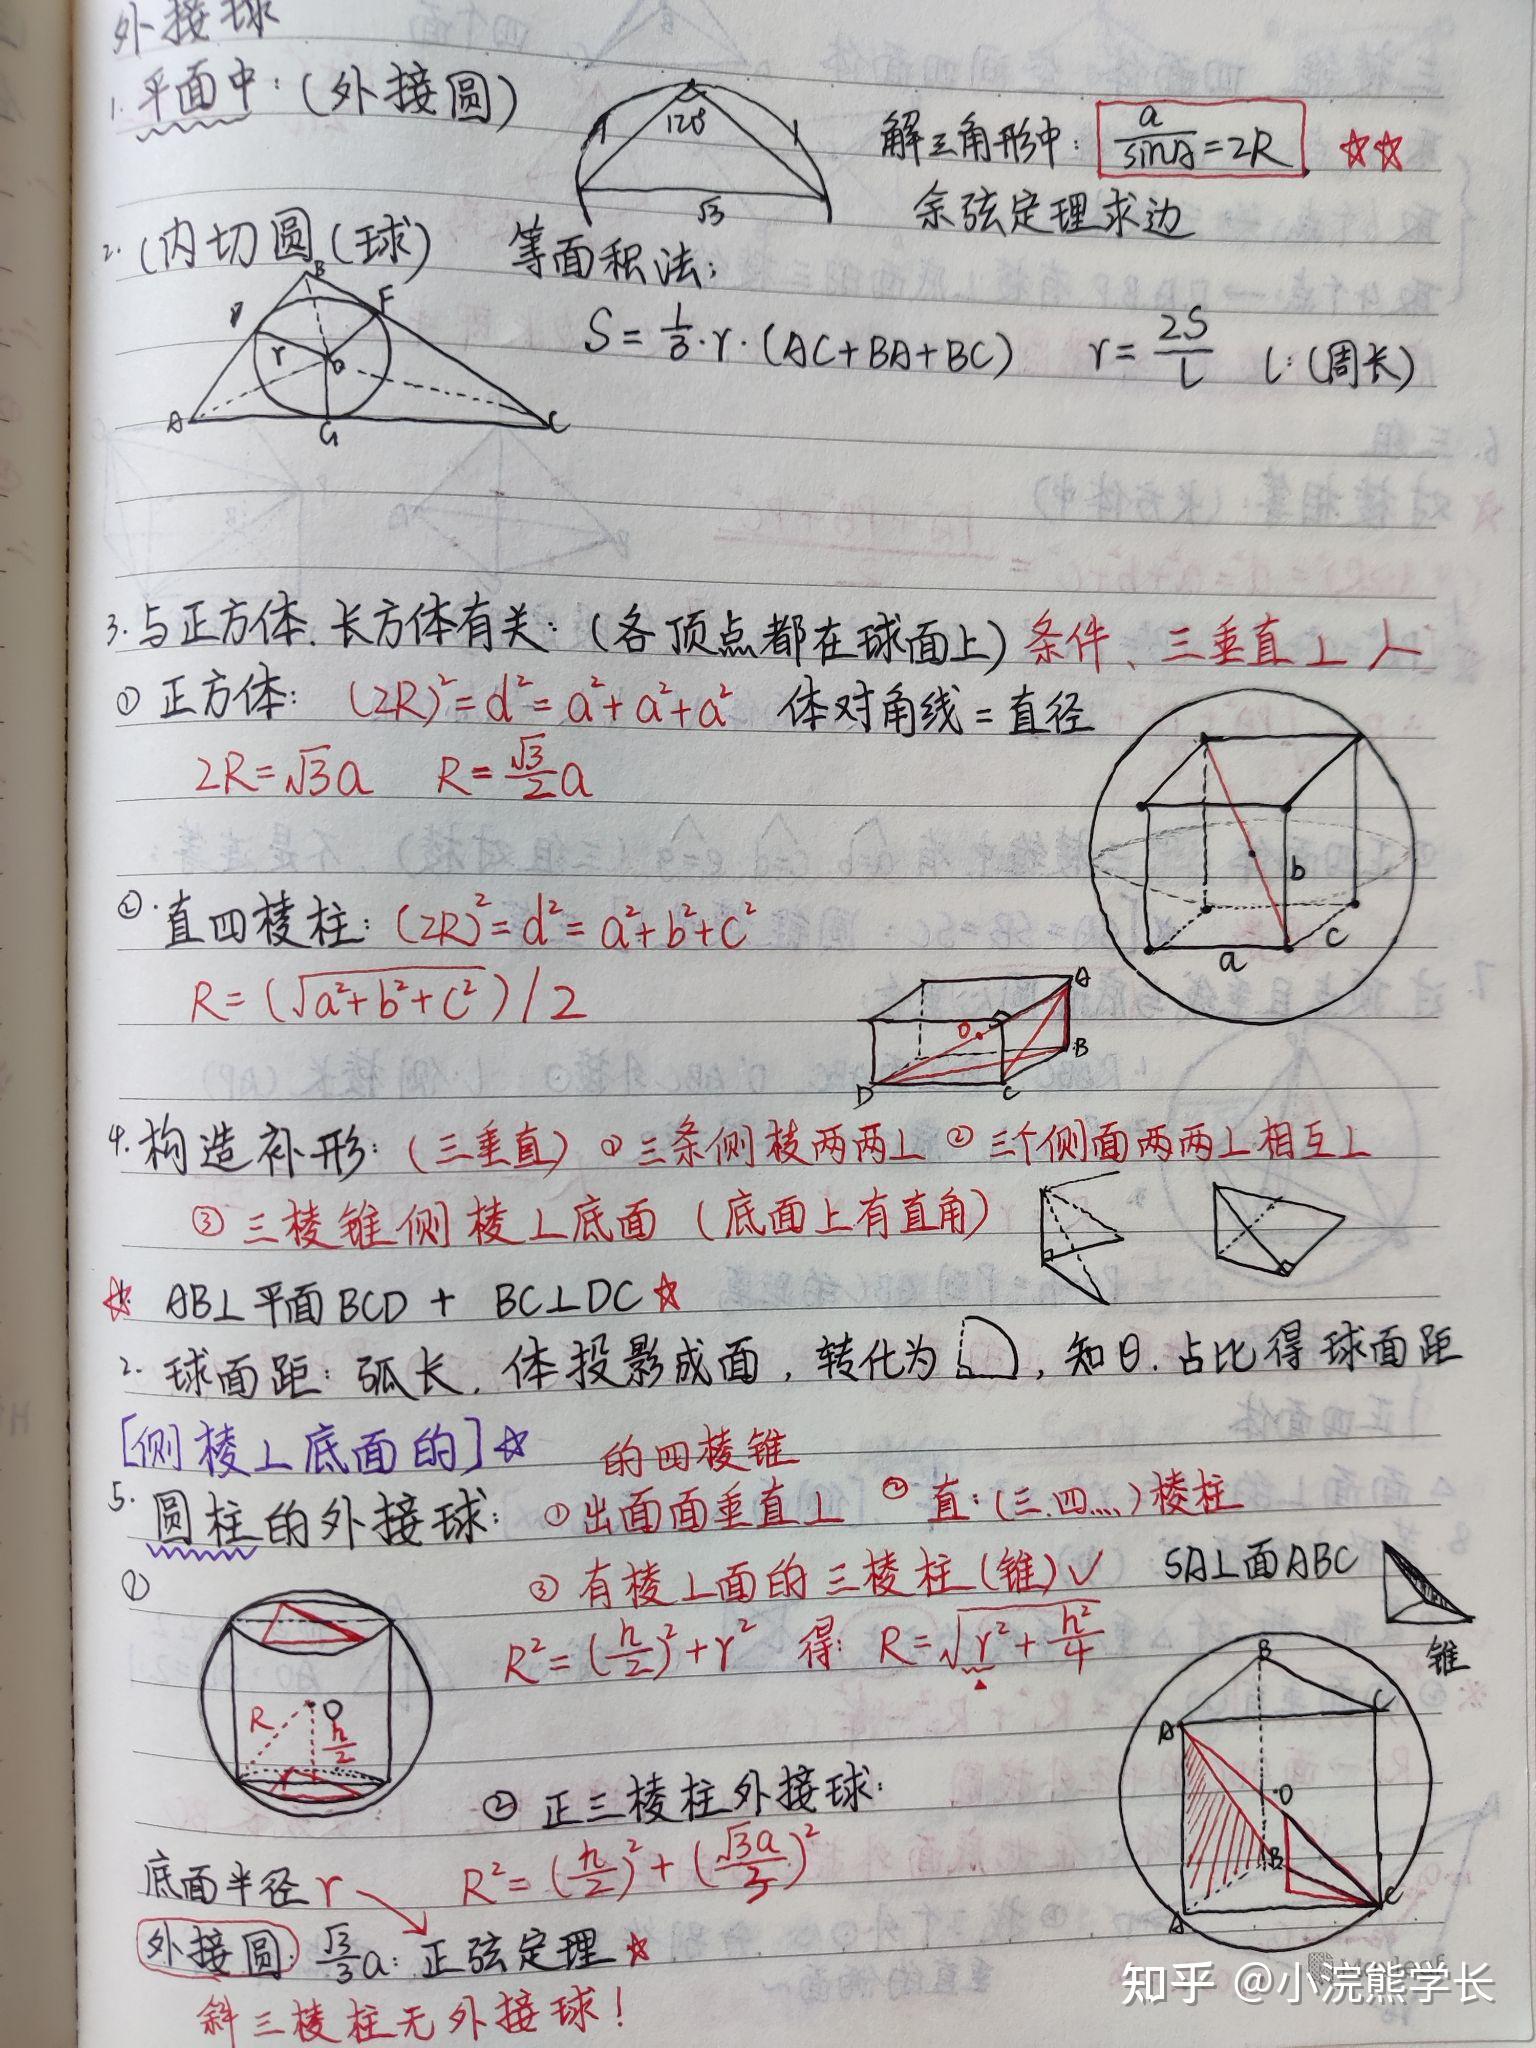 外接球
1. 平面中:(外接圆)
120°
√3
解三角形中: a/sinA=2R ☆☆
余弦定理求边
2. (内切圆(球) 等面积法:
B
F
r
O
A
G
C
S=1/3·r·(AC+BA+BC) r=2S/L l:(周长)
3. 与正方体、长方体有关:(各顶点都在球面上)条件、三垂直⊥
① 正方体: (2R)²=d²=a²+a²+a² 体对角线=直径
2R=√3a R=√3/2a
b
c
a
②. 直四棱柱:(2R)²=d²=a²+b²+c²
R=(√a²+b²+c²)/2
A
O
B
D
C
4. 构造补形:(三垂直) ①三条侧棱两两⊥ ②三个侧面两两⊥相互⊥
③ 三棱锥侧棱⊥底面(底面上有直角)
☆ AB⊥平面BCD + BC⊥DC☆
2. 球面距:弧长,体投影成面,转化为,知θ.占比得球面距
[侧棱⊥底面的]☆ 的四棱锥
5. 圆柱的外接球: ①出面面垂直⊥ ②直:(三.四....)棱柱
③ 有棱⊥面的三棱柱(锥)✓ SA⊥面ABC
锥
①
R²=(h/2)²+r² 得: R=√r²+h²/4
R
O
h/2
r
B
C
A
O
B
A
C
② 正三棱柱外接球:
底面半径r R²=(h/2)²+(√3a/3)²
外接圆. √3/3a:正弦定理☆
斜三棱柱无外接球!
知乎 @小浣熊学长